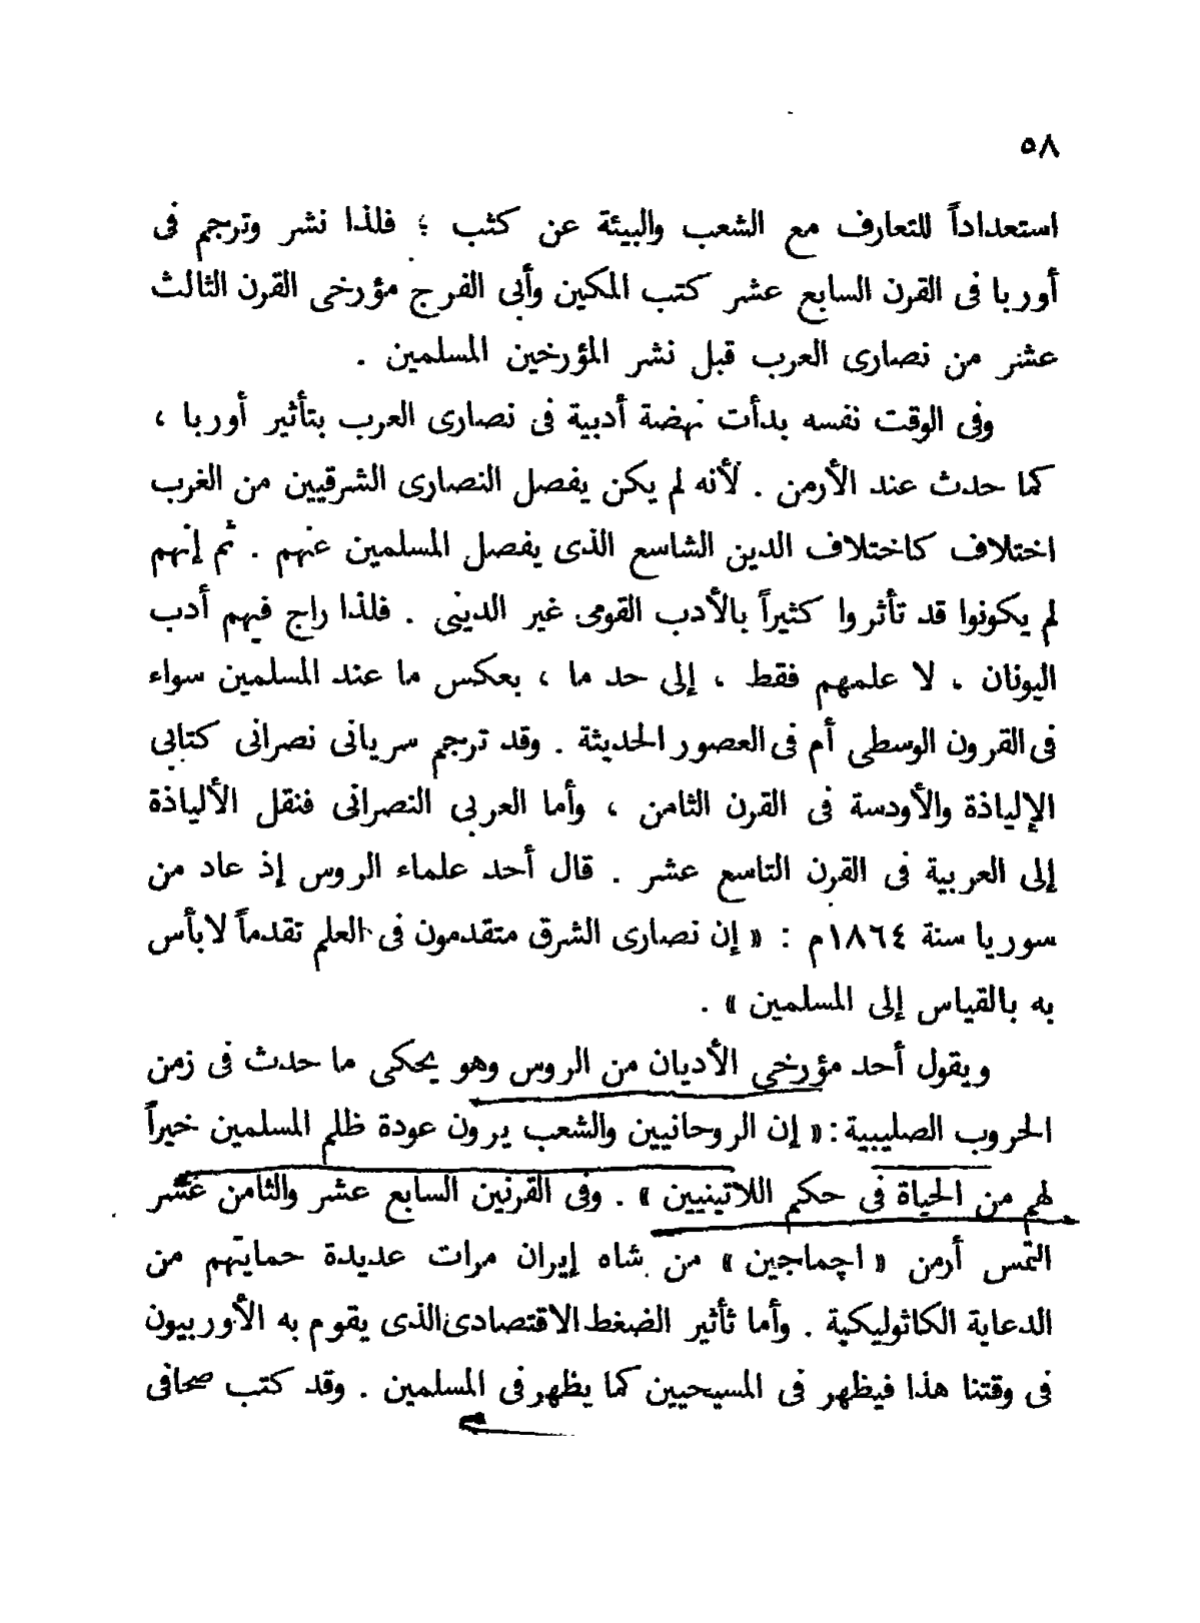 ٥٨
استعداداً للتعارف مع الشعب والبيئة عن كثب ؛ فلذا نشر وترجم فى
أوربا فى القرن السابع عشر كتب المكين وأبى الفرج مؤرخى القرن الثالث
عشر من نصارى العرب قبل نشر المؤرخين المسلمين .
وفى الوقت نفسه بدأت نهضة أدبية فى نصارى العرب بتأثير أوربا ،
كما حدث عند الأرمن . لأنه لم يكن يفصل النصارى الشرقيين من الغرب
اختلاف كاختلاف الدين الشاسع الذى يفصل المسلمين عنهم . ثم إنهم
لم يكونوا قد تأثروا كثيراً بالأدب القومى غير الدينى . فلذا راج فيهم أدب
اليونان ، لا علمهم فقط ، إلى حد ما ، بعكس ما عند المسلمين سواء
فى القرون الوسطى أم فى العصور الحديثة . وقد ترجم سريانى نصرانى كتابى
الإلياذة والأودسة فى القرن الثامن ، وأما العربى النصرانى فنقل الألياذة
إلى العربية فى القرن التاسع عشر . قال أحد علماء الروس إذ عاد من
سوريا سنة ١٨٦٤م : « إن نصارى الشرق متقدمون فى العلم تقدماً لا بأس
به بالقياس إلى المسلمين » .
ويقول أحد مؤرخى الأديان من الروس وهو يحكى ما حدث فى زمن
الحروب الصليبية : « إن الروحانيين والشعب يرون عودة ظلم المسلمين خيراً
لهم من الحياة فى حكم اللاتينيين » . وفى القرنين السابع عشر والثامن عشر
التمس أرمن « اچماجين » من شاه إيران مرات عديدة حمايتهم من
الدعاية الكاثوليكية . وأما تأثير الضغط الاقتصادى الذى يقوم به الأوربيون
فى وقتنا هذا فيظهر فى المسيحيين كما يظهر فى المسلمين . وقد كتب صحافى